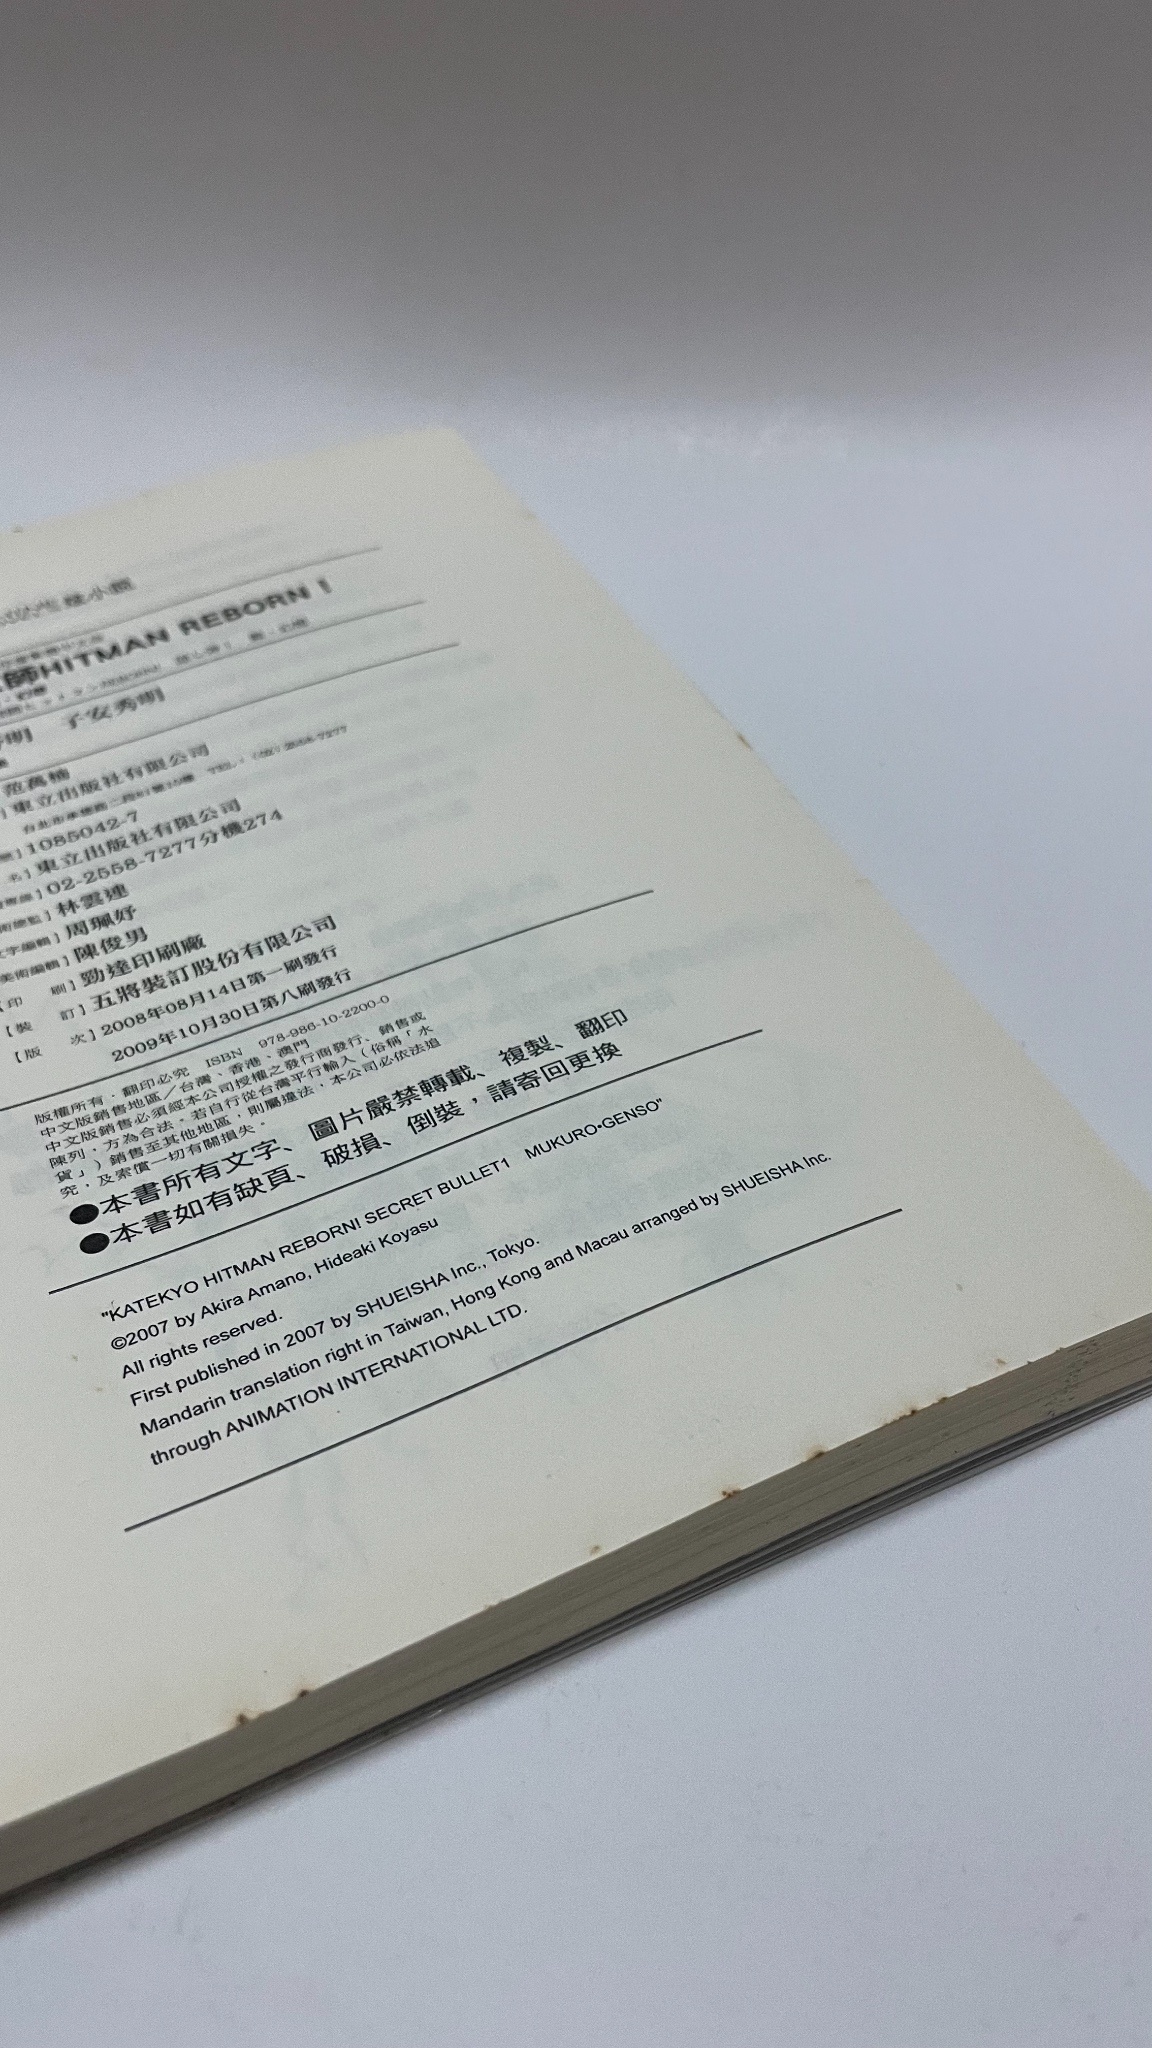 師HITMAN REBORN！
子安秀明
范萬楠
東立出版社有限公司
1085042-7
東立出版社有限公司
02-2558-7277分機274
林雲連
文字編輯】周珮妤
美術編輯】陳俊男
【印 刷】勁達印刷廠
【裝 訂】五將裝訂股份有限公司
【版 次】2008年08月14日第一刷發行
2009年10月30日第八刷發行
版權所有．翻印必究 ISBN 978-986-10-2200-0
中文版銷售地區／台灣、香港、澳門
中文版銷售必須經本公司授權之發行商發行、銷售或
陳列，方為合法。若自行從台灣平行輸入（俗稱「水
貨」）銷售至其他地區，則屬違法，本公司必依法追
究，及索償一切有關損失。
●本書所有文字、圖片嚴禁轉載、複製、翻印
●本書如有缺頁、破損、倒裝，請寄回更換
"KATEKYO HITMAN REBORN! SECRET BULLET1 MUKURO•GENSO"
©2007 by Akira Amano, Hideaki Koyasu
All rights reserved.
First published in 2007 by SHUEISHA Inc., Tokyo.
Mandarin translation right in Taiwan, Hong Kong and Macau arranged by SHUEISHA Inc.
through ANIMATION INTERNATIONAL LTD.